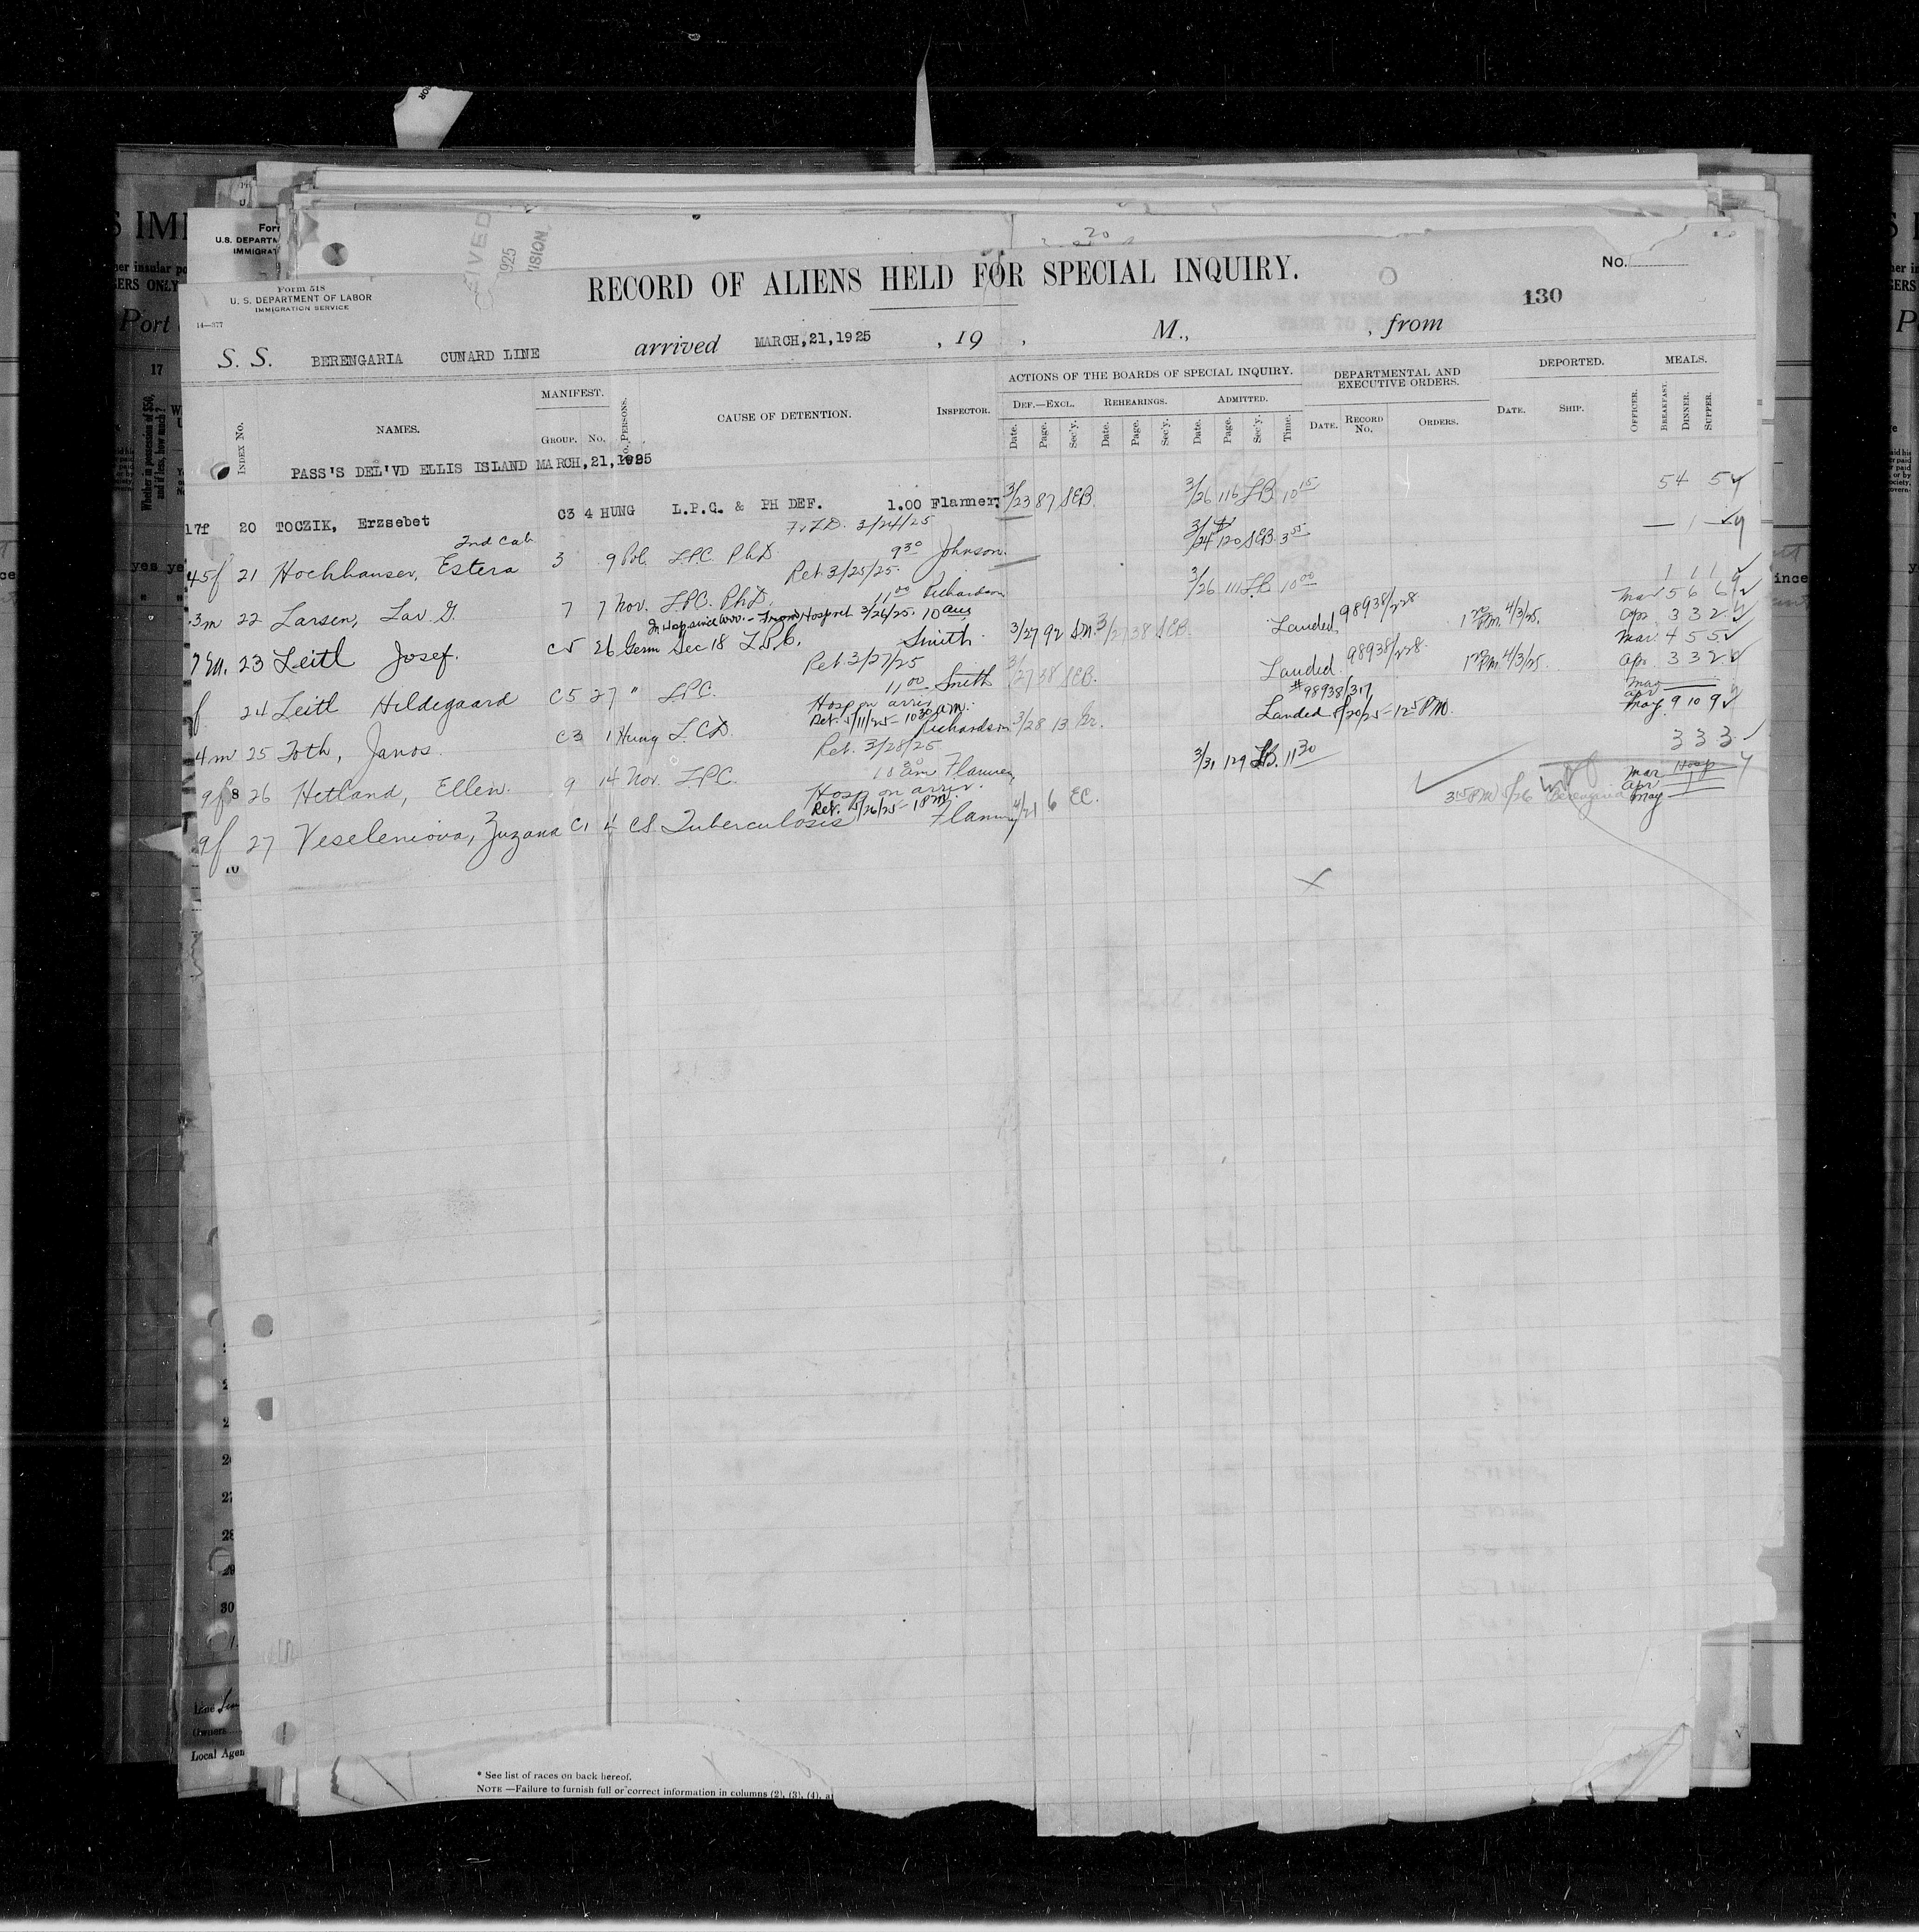 RECORD OF ALIENS HELD FOR SPECIAL INQUIRY.
No.
130
Form 518
U. S. DEPARTMENT OF LABOR
IMMIGRATION SERVICE
14—377
S. S. BERENGARIA CUNARD LINE arrived MARCH,21,1925 , 19 , M., , from
INDEX No. NAMES. MANIFEST. GROUP. No. No. PERSONS. CAUSE OF DETENTION. INSPECTOR.
ACTIONS OF THE BOARDS OF SPECIAL INQUIRY. DEPARTMENTAL AND EXECUTIVE ORDERS. DEPORTED. MEALS.
DEF.—EXCL. REHEARINGS. ADMITTED.
Date. Page. Sec'y. Date. Page. Sec'y. Date. Page. Sec'y. Time. DATE. RECORD No. ORDERS. DATE. SHIP. OFFICER. BREAKFAST. DINNER. SUPPER.
PASS'S DEL'VD ELLIS ISLAND MARCH,21,1925
17f 20 TOCZIK, Erzsebet C3 4 HUNG L.P.C. & PH DEF. 1.00 Flanner; 3/23 87 SEB. 3/26 116 LB. 10 15 5 4 5
2nd Cab 3/24/25
45f 21 Hochhauser, Estera 3 9 Pol. LPC PhD 9 30 Johnson. 3/24 120 SEB. 3 55 — 1 —
Ret 3/25/25.
3m 22 Larsen, Lav G. 7 7 Nor. LPC. PhD. 11 00 Richardson 3/26 111 LB. 10 00 1 1 1
In Hosp since arr. - From Hosp ret 3/26/25. 10 am
23 Leitl Josef. C5 26 Germ Sec 18 L.P.C. Smith. 3/27 92 38 SEB. Landed 98938/228 1 20 PM. 4/3/25. Mar 5 6 6
Apr. 3 3 2
Ret 3/27/25
f 24 Leitl Hildegaard C5 27 " LPC. 11 00 Smith 3/27 38 SEB. Landed. 98938/228. 1 20 PM 4/3/25. Mar. 4 5 5
Apr. 3 3 2
Hosp on arriv
Ret. 5/11/25 - 10 30 a.m.
4m 25 Toth, Janos. C3 1 Hung L.C.D. Richardson 3/28 13 #98938/317 Landed 5/20/25 - 12 5 PM. Mar
Apr
May. 9 10 9
Ret. 3/28/25
9f 26 Hetland, Ellen. 9 14 Nor. LPC. 10 30 am Flanner 3/31 129 LB. 11 30 3 3 3
Hosp on arriv.
Ret. 5/26/25 - 1 8 PM.
9f 27 Veseleniova, Zuzana C1 4 CS. Tuberculosis Flanner 4/21 6 EC. 3 15 PM 5/26 Berengaria Mar Hosp
Apr
May 1
* See list of races on back hereof.
NOTE —Failure to furnish full or correct information in columns (2), (3), (4),